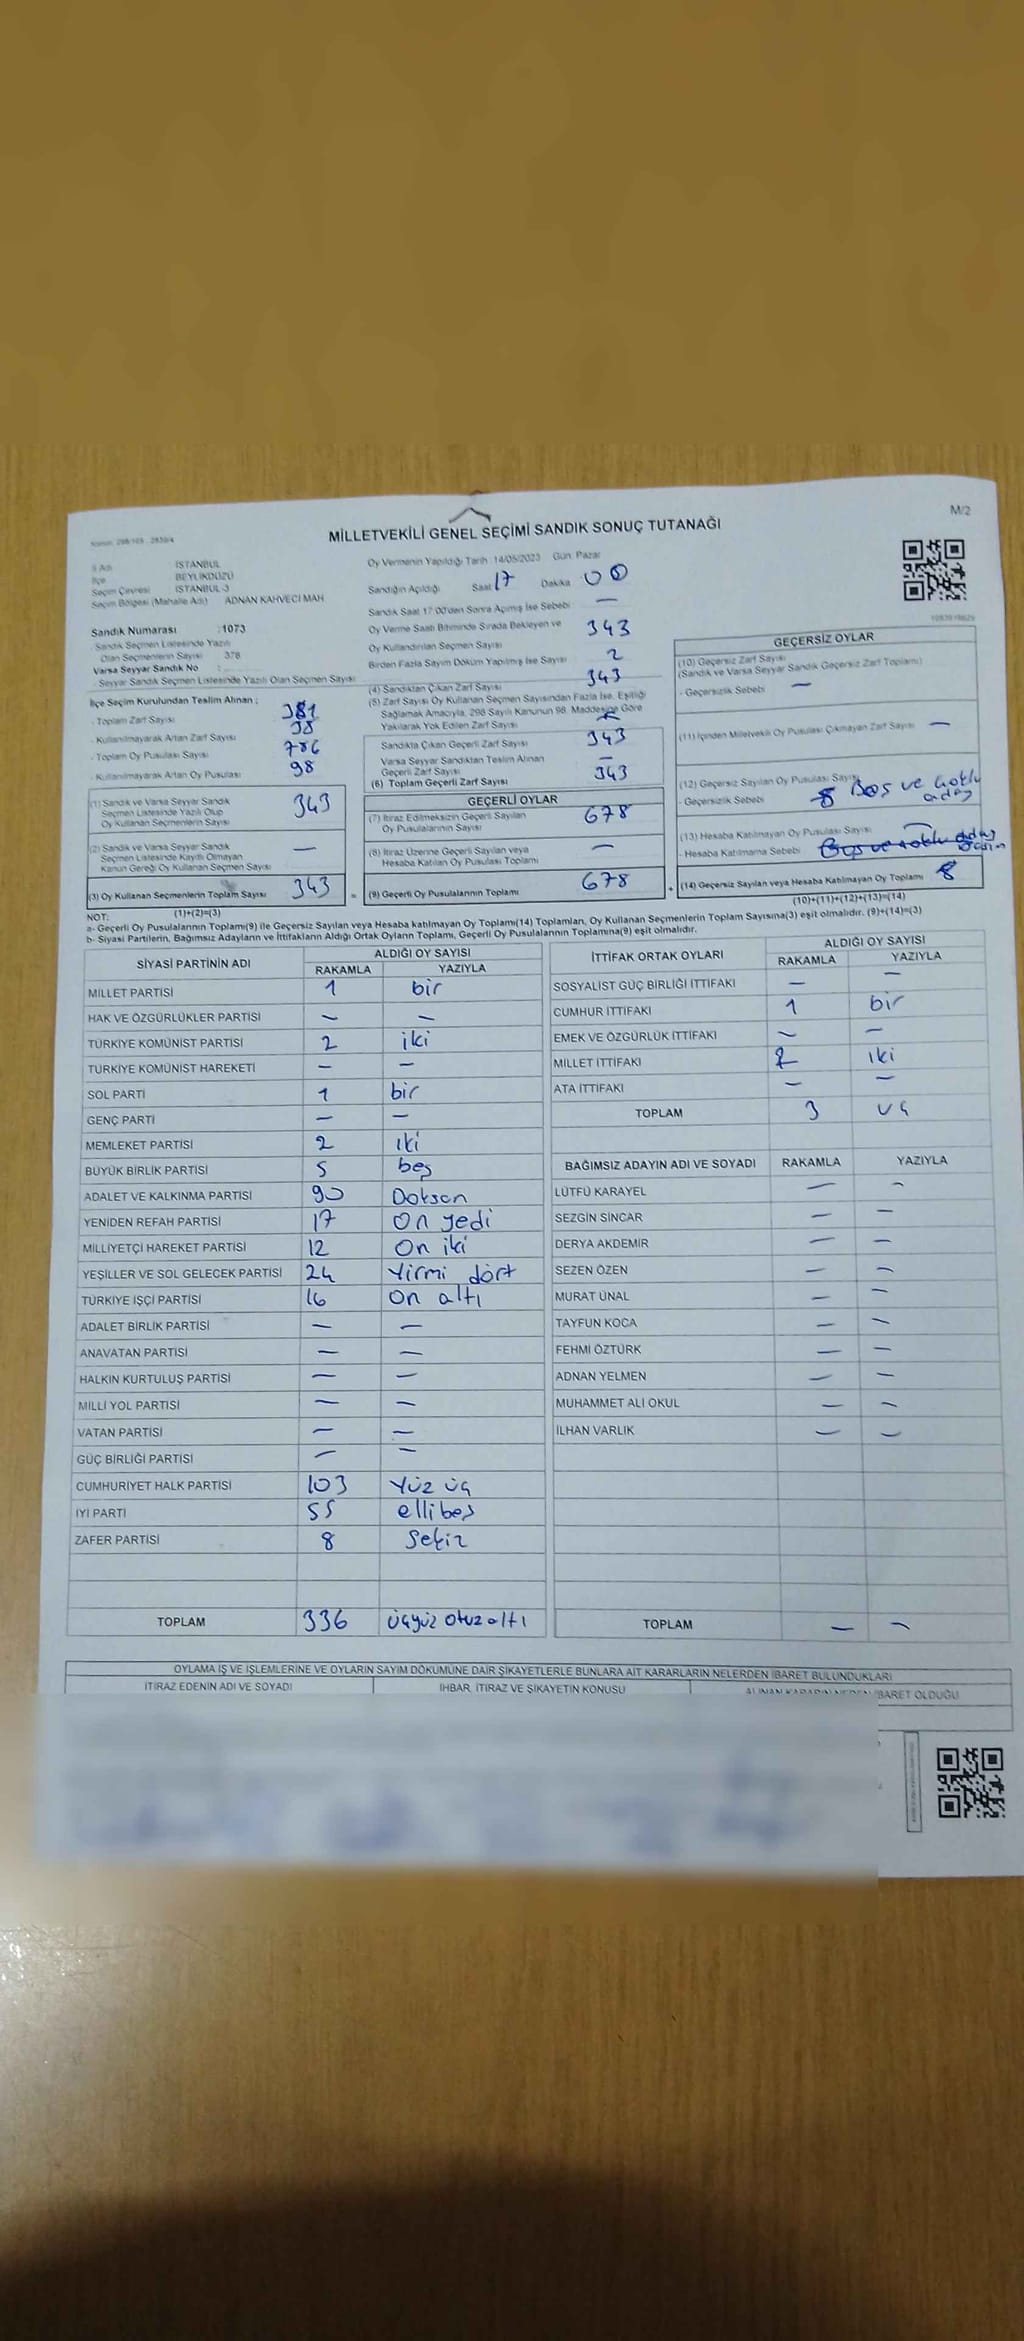 M/2
MİLLETVEKİLİ GENEL SEÇİMİ SANDIK SONUÇ TUTANAĞI
İl Adı : İSTANBUL
İlçe : BEYLİKDÜZÜ
Seçim Çevresi : İSTANBUL-3
Seçim Bölgesi (Mahalle Adı) : ADNAN KAHVECİ MAH
Sandık Numarası : 1073
Sandık Seçmen Listesinde Yazılı
Olan Seçmenlerin Sayısı : 378
Varsa Seyyar Sandık No :
Seyyar Sandık Seçmen Listesinde Yazılı Olan Seçmen Sayısı
Oy Vermenin Yapıldığı Tarih : 14/05/2023 Gün: Pazar
Sandığın Açıldığı Saat 17 Dakika 00
Sandık Saat 17:00'den Sonra Açımış İse Sebebi : —
Oy Verme Saati Bitiminde Sırada Bekleyen ve
Oy Kullandırılan Seçmen Sayısı 343
Birden Fazla Sayım Döküm Yapılmış İse Sayısı 2
İlçe Seçim Kurulundan Teslim Alınan :
- Toplam Zarf Sayısı 381
- Kullanılmayarak Artan Zarf Sayısı 38
- Toplam Oy Pusulası Sayısı 786
- Kullanılmayarak Artan Oy Pusulası 98
(1) Sandık ve Varsa Seyyar Sandık
Seçmen Listesinde Yazılı Olup
Oy Kullanan Seçmenlerin Sayısı 343
(2) Sandık ve Varsa Seyyar Sandık
Seçmen Listesinde Kayıtlı Olmayan
Kanun Gereği Oy Kullanan Seçmen Sayısı —
(3) Oy Kullanan Seçmenlerin Toplam Sayısı 343
(1)+(2)=(3)
(4) Sandıktan Çıkan Zarf Sayısı 343
(5) Zarf Sayısı Oy Kullanan Seçmen Sayısından Fazla İse, Eşitliği
Sağlamak Amacıyla, 298 Sayılı Kanunun 98. Maddesine Göre
Yakılarak Yok Edilen Zarf Sayısı
Sandıkta Çıkan Geçerli Zarf Sayısı 343
Varsa Seyyar Sandıktan Teslim Alınan
Geçerli Zarf Sayısı —
(6) Toplam Geçerli Zarf Sayısı 343
GEÇERLİ OYLAR
(7) İtiraz Edilmeksizin Geçerli Sayılan
Oy Pusulalarının Sayısı 678
(8) İtiraz Üzerine Geçerli Sayılan veya
Hesaba Katılan Oy Pusulası Toplamı —
= (9) Geçerli Oy Pusulalarının Toplamı 678
GEÇERSİZ OYLAR
(10) Geçersiz Zarf Sayısı
(Sandık ve Varsa Seyyar Sandık Geçersiz Zarf Toplamı)
- Geçersizlik Sebebi —
(11) İçinden Milletvekili Oy Pusulası Çıkmayan Zarf Sayısı —
(12) Geçersiz Sayılan Oy Pusulası Sayısı
- Geçersizlik Sebebi 8 Boş ve
(13) Hesaba Katılmayan Oy Pusulası Sayısı —
- Hesaba Katılmama Sebebi Boş ve
+ (14) Geçersiz Sayılan veya Hesaba Katılmayan Oy Toplamı 8
(10)+(11)+(12)+(13)=(14)
NOT:
a- Geçerli Oy Pusulalarının Toplamı(9) ile Geçersiz Sayılan veya Hesaba katılmayan Oy Toplamı(14) Toplamları, Oy Kullanan Seçmenlerin Toplam Sayısına(3) eşit olmalıdır. (9)+(14)=(3)
b- Siyasi Partilerin, Bağımsız Adayların ve İttifakların Aldığı Ortak Oyların Toplamı, Geçerli Oy Pusulalarının Toplamına(9) eşit olmalıdır.
SİYASİ PARTİNİN ADI ALDIĞI OY SAYISI
RAKAMLA YAZIYLA
MİLLET PARTİSİ 1 bir
HAK VE ÖZGÜRLÜKLER PARTİSİ — —
TÜRKİYE KOMÜNİST PARTİSİ 2 iki
TÜRKİYE KOMÜNİST HAREKETİ — —
SOL PARTİ 1 bir
GENÇ PARTİ — —
MEMLEKET PARTİSİ 2 iki
BÜYÜK BİRLİK PARTİSİ 5 beş
ADALET VE KALKINMA PARTİSİ 90 Doksan
YENİDEN REFAH PARTİSİ 17 On yedi
MİLLİYETÇİ HAREKET PARTİSİ 12 On iki
YEŞİLLER VE SOL GELECEK PARTİSİ 24 Yirmi dört
TÜRKİYE İŞÇİ PARTİSİ 16 On altı
ADALET BİRLİK PARTİSİ — —
ANAVATAN PARTİSİ — —
HALKIN KURTULUŞ PARTİSİ — —
MİLLİ YOL PARTİSİ — —
VATAN PARTİSİ — —
GÜÇ BİRLİĞİ PARTİSİ — —
CUMHURİYET HALK PARTİSİ 103 Yüz üç
İYİ PARTİ 55 elli beş
ZAFER PARTİSİ 8 Sekiz
TOPLAM 336 üçyüz otuz altı
İTTİFAK ORTAK OYLARI ALDIĞI OY SAYISI
RAKAMLA YAZIYLA
SOSYALİST GÜÇ BİRLİĞİ İTTİFAKI — —
CUMHUR İTTİFAKI 1 bir
EMEK VE ÖZGÜRLÜK İTTİFAKI — —
MİLLET İTTİFAKI 2 iki
ATA İTTİFAKI — —
TOPLAM 3 üç
BAĞIMSIZ ADAYIN ADI VE SOYADI RAKAMLA YAZIYLA
LÜTFÜ KARAYEL — —
SEZGİN SİNCAR — —
DERYA AKDEMİR — —
SEZEN ÖZEN — —
MURAT ÜNAL — —
TAYFUN KOCA — —
FEHMİ ÖZTÜRK — —
ADNAN YELMEN — —
MUHAMMET ALİ OKUL — —
İLHAN VARLIK — —
TOPLAM — —
OYLAMA İŞ VE İŞLEMLERİNE VE OYLARIN SAYIM DÖKÜMÜNE DAİR ŞİKAYETLERLE BUNLARA AİT KARARLARIN NELERDEN İBARET BULUNDUKLARI
İTİRAZ EDENİN ADI VE SOYADI İHBAR, İTİRAZ VE ŞİKAYETİN KONUSU ALINAN KARARIN NEDEN İBARET OLDUĞU